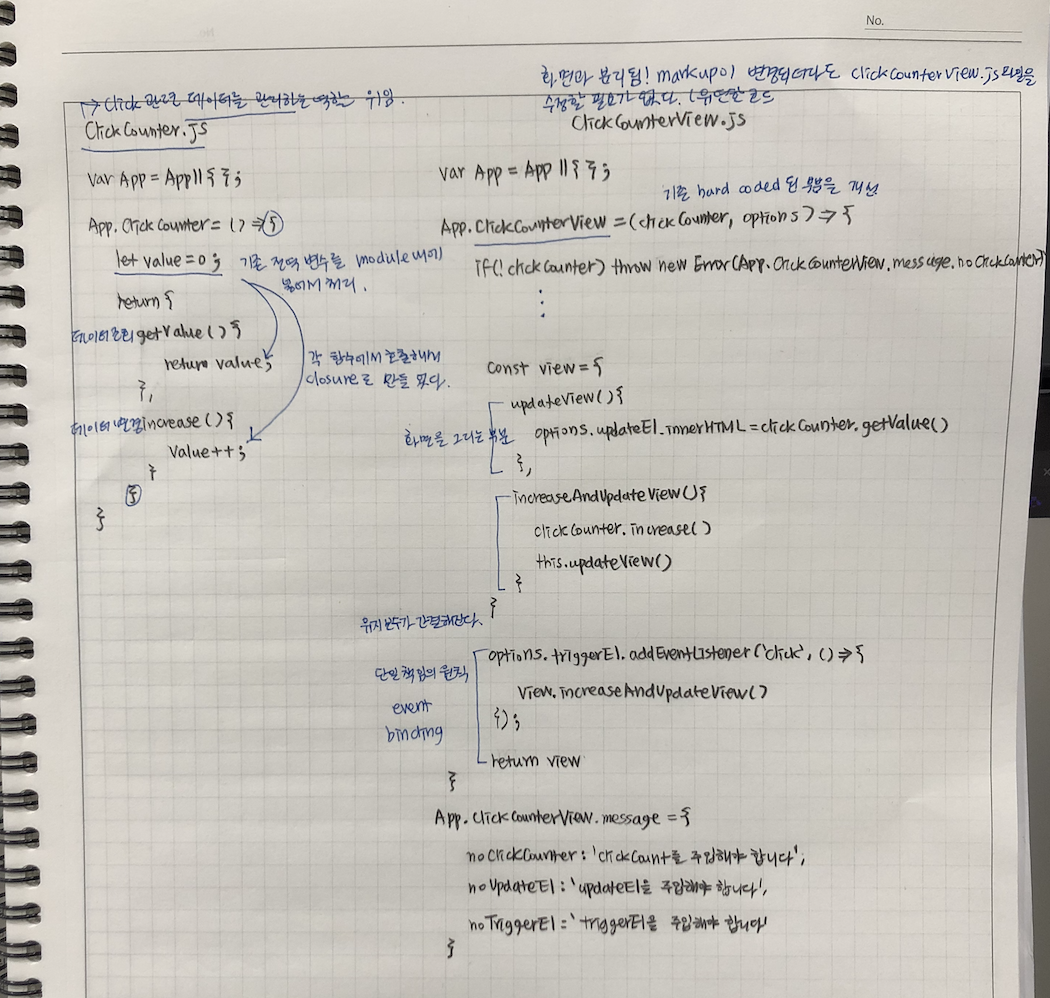 No.
→ Click 관련 데이터를 관리하는 역할 위임.
ClickCounter.js
var App = App || { };
App.ClickCounter = () => {
let value = 0;
기존 전역 변수를 module 내에
서 처리.
return {
데이터 조회 getValue() {
return value;
},
각 함수에서 호출해서
closure로 만들 었다.
데이터 변경 increase() {
value++;
}
}
}
화면과 분리됨! markup이 변경되더라도 clickCounterView.js 파일을
수정할 필요가 없다. (유연한 코드
ClickCounterView.js
var App = App || { };
기존 hard coded 된 부분을 개선
App.ClickCounterView = (clickCounter, options) => {
if(!clickCounter) throw new Error(App.ClickCounterView.message.noClickCounter)
⋮
const view = {
updateView() {
화면을 그리는 부분 options.updateEl.innerHTML = clickCounter.getValue()
},
increaseAndUpdateView() {
clickCounter.increase()
this.updateView()
}
}
유지보수가 간결해진다.
options.triggerEl.addEventListener('click', () => {
단일 책임의 원칙
View.increaseAndUpdateView()
event
});
binding
return view
}
App.ClickCounterView.message = {
noClickCounter : 'clickCount를 주입해야 합니다',
noUpdateEl : 'updateEl을 주입해야 합니다',
noTriggerEl = 'triggerEl을 주입해야 합니다'
}